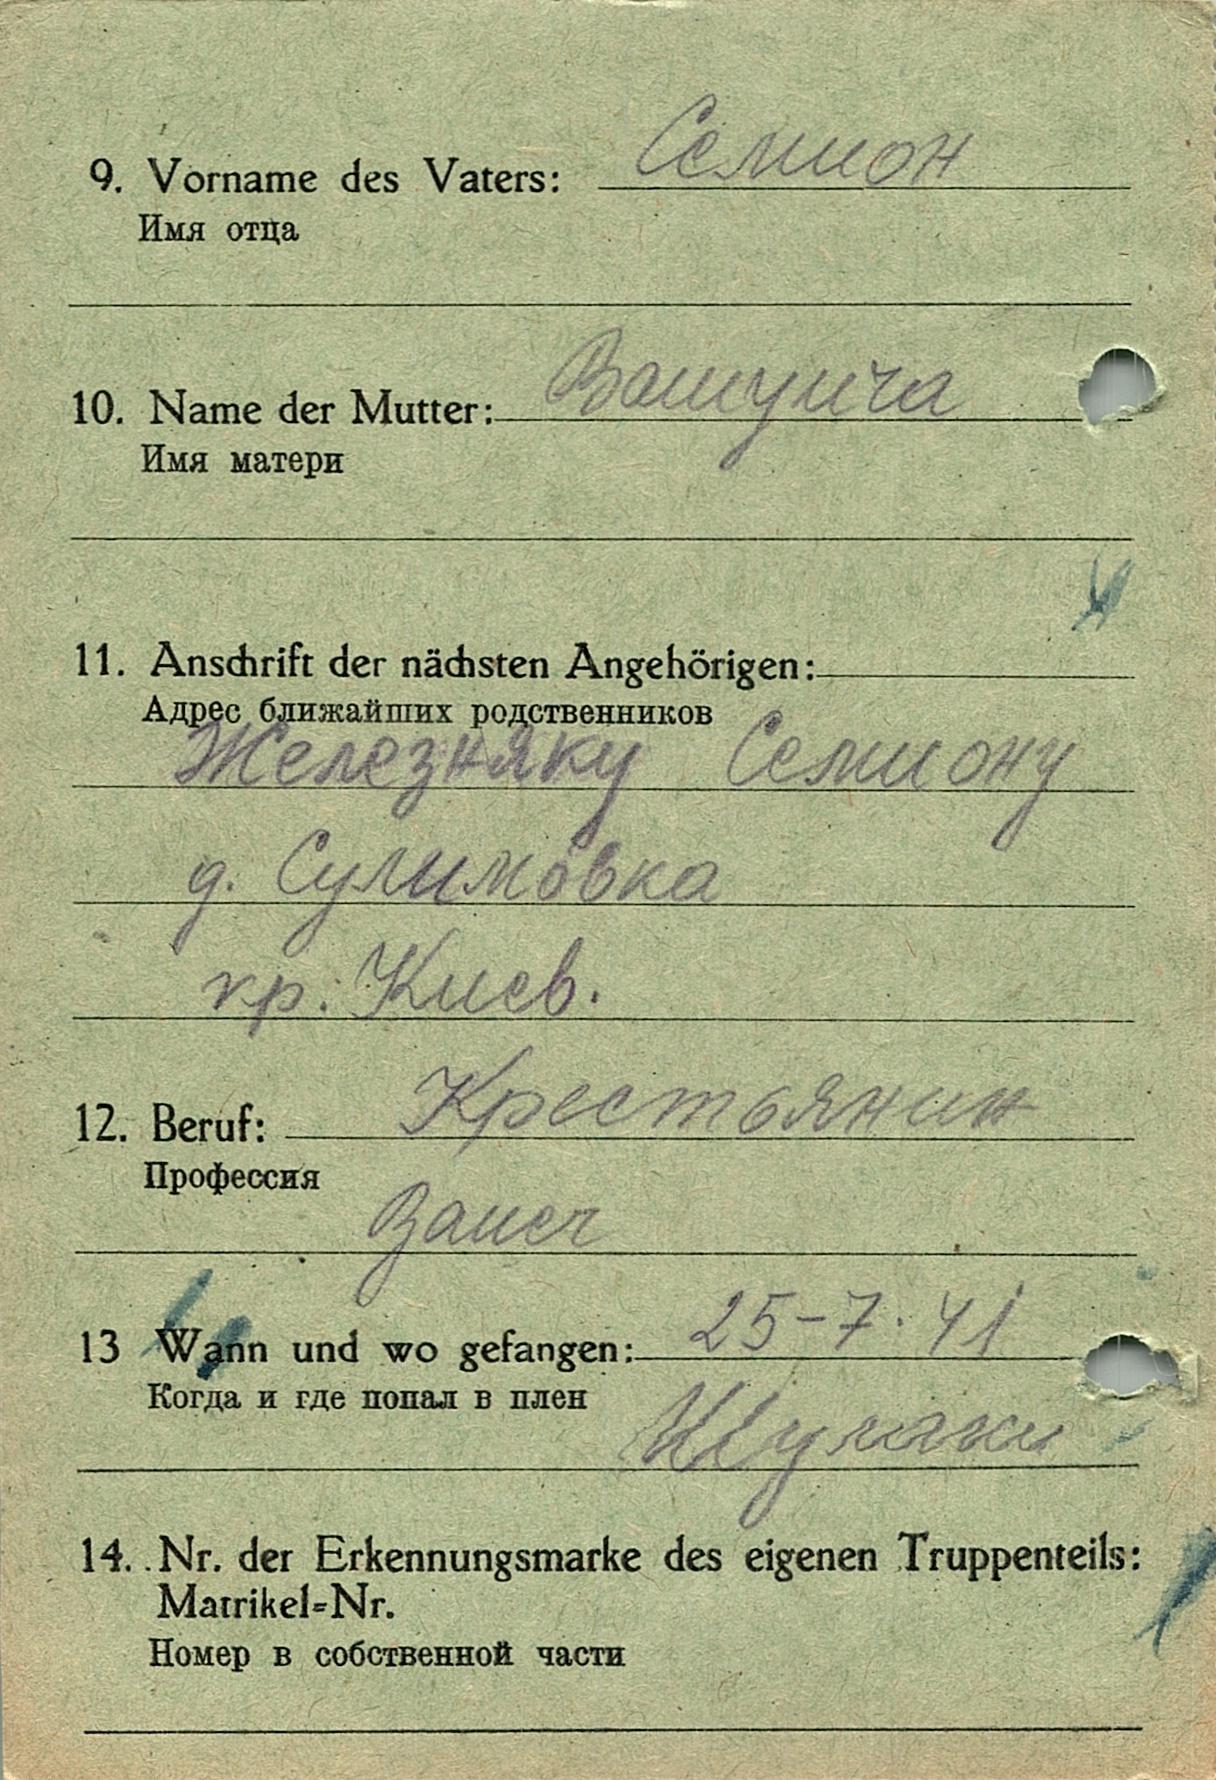 9. Vorname des Vaters: Семион
Имя отца
10. Name der Mutter:
Имя матери
11. Anschrift der nächsten Angehörigen:
Адрес ближайших родственников
Железняку Семиону
д. Сулимовка
кр. Киев.
12. Beruf: Крестьянин
Профессия
13 Wann und wo gefangen: 25-7.41
Когда и где попал в плен
14. Nr. der Erkennungsmarke des eigenen Truppenteils:
Matrikel=Nr.
Номер в собственной части